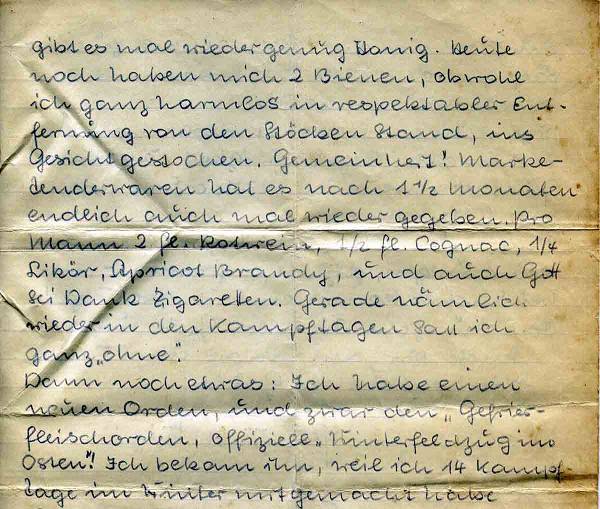 gibt es mal wieder genug Honig. Heute
noch haben mich 2 Bienen, obwohl
ich ganz harmlos in respektabler Ent-
fernung von den Stöcken stand, ins
Gesicht gestochen. Gemeinheit! Marke-
tenderwaren hat es nach 1 1/2 Monaten
endlich auch mal wieder gegeben. Pro
Mann 2 Fl. Rotwein, 1/2 Fl. Cognac, 1/4
Likör, Apricot Brandy, und auch Gott
sei Dank Zigaretten. Gerade nämlich
wieder in den Kampftagen saß ich
ganz „ohne“.
Dann noch etwas: Ich habe einen
neuen Orden, und zwar den „Gefrier-
fleischorden, offiziell „Winterfeldzug im
Osten“! Ich bekam ihn, weil ich 14 Kampf-
tage im Winter mitgemacht habe